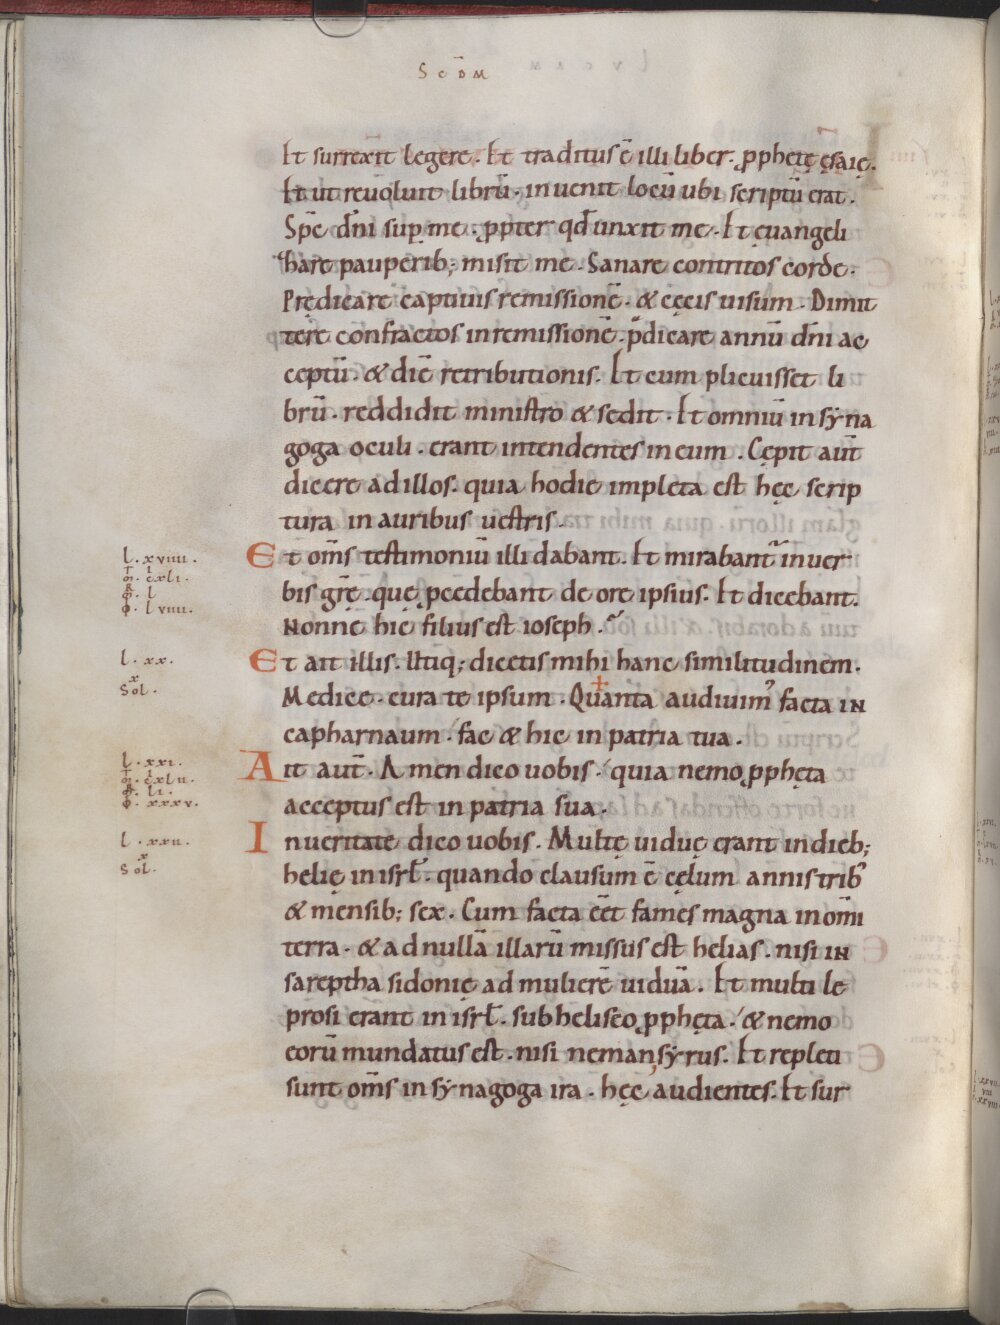 Scdm̄
Et surrexit legere. Et traditus ē illi liber. ꝓphetę ęsaię.
Et ut reuoluit librū. inuenit locū ubi scriptū erat.
Sp̄c dn̄i sup me. ꝓpter qd̄ unxit me. Et ęuangeli
hare pauperib; misit me. Sanare contritos corde.
Prędicare captiuis remissionē. & cęcis uisum. Dimit
tere confractos in remissionē. p̄dicare annū dn̄i ac
ceptū. & diē retributionis. Et cum plicuisset li
brū. reddidit ministro & sedit. Et omniū in syna
goga oculi. erant intendentes in eum. Cępit aut̄
dicere ad illos. quia hodie impleta est hęc scrip
tura in auribus uestris.
l. xviiii.
m̄. cxli.
R. l
Io. lviiii.
Et om̄s testimoniū illi dabant. Et mirabant᷑ in uer
bis gr̄ę. quę ꝓcedebant de ore ipsius. Et dicebant.
Nonne hic filius est ioseph.
l. xx.
x
Sol.
Et ait illis. Utiq; dicetis mihi hanc similitudinem.
Medice. cura te ipsum. Quanta audiuim᾿ facta in
capharnaum. fac & hic in patria tua.
l. xxi.
m̄. cxlii.
R. li.
Io. xxxv.
Ait aut̄. Amen dico uobis. quia nemo ꝓphęta
acceptus est in patria sua.
l. xxii.
x
Sol.
In ueritate dico uobis. Multę uiduę erant in dieb;
helię in isrł. quando clausum ē cęlum annis trib᾿
& mensib; sex. Cum facta eēt fames magna in om̄i
terra. & ad nullā illarū missus est helias. nisi in
sareptha sidonię ad mulierē uiduā. Et multi le
prosi erant in isrł. sub heliseo ꝓphęta. & nemo
eorū mundatus est. nisi neman, syrus. Et repleti
sunt om̄s in synagoga ira. hęc audientes. Et sur